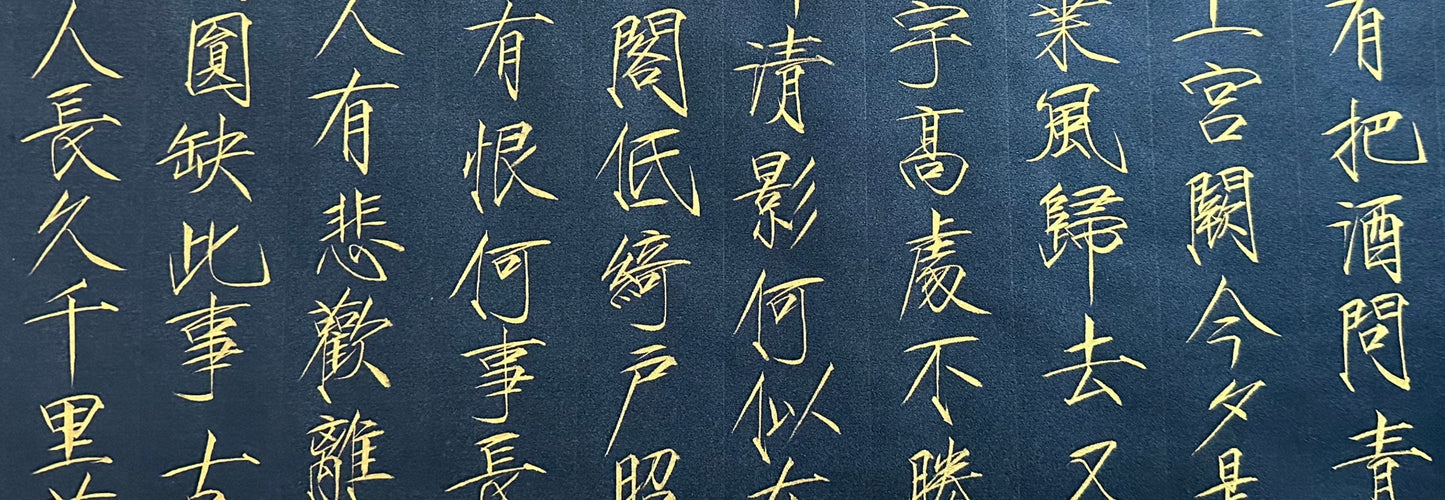 有把酒問青
上宮闕今夕是
乘風歸去又
宇高處不勝
清影何似在
閣低綺户照
有恨何事長
人有悲歡離
圓缺此事古
人長久千里